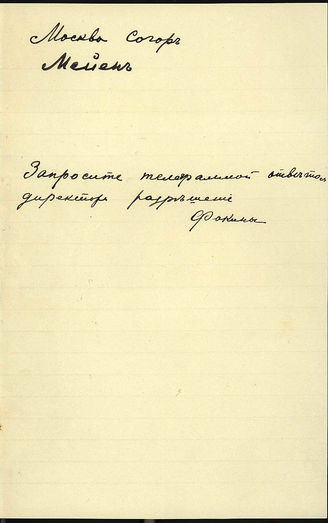 Москва Согоръ
Мейенъ
Запросите телеграммой отвѣтом
директора разрѣшеніе
Фокины